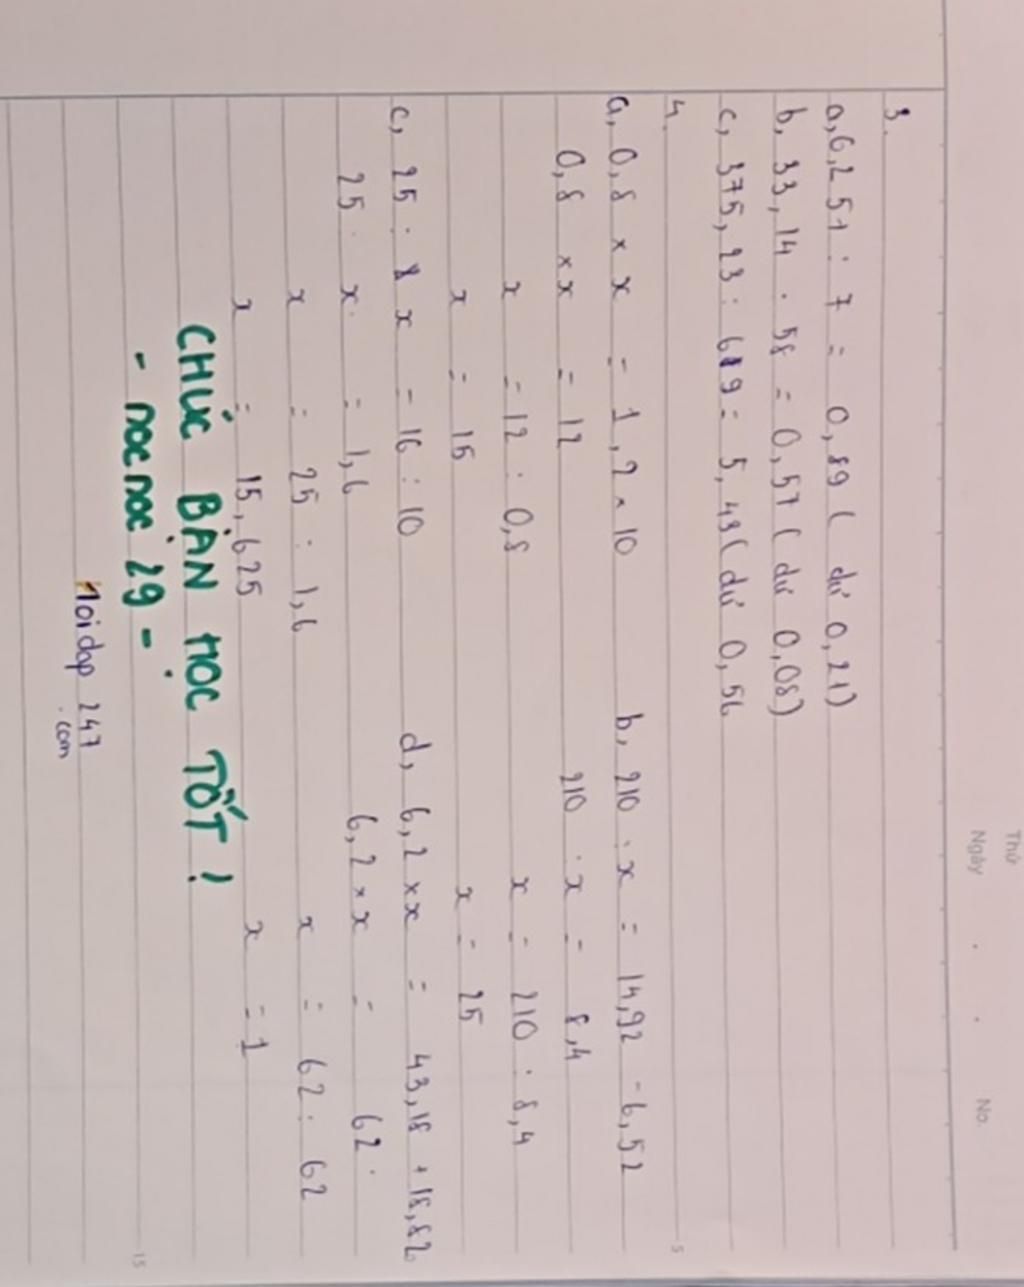 Thứ
Ngày . . No.
3.
a, 6,251 : 7 = 0,89 ( dư 0,21)
b, 33,14 : 58 = 0,57 ( dư 0,08)
c, 375,23 : 69 = 5,43 ( dư 0,56
4. 5
a, 0,8 x x = 1,2 x 10 b, 210 : x = 14,92 - 6,52
0,8 x x = 12 210 : x = 8,4
x = 12 : 0,8 x = 210 : 8,4
x = 15 x = 25
c, 25 : x = 16 : 10 d, 6,2 x x = 43,18 + 18,82
25 : x = 1,6 6,2 x x = 62
x = 25 : 1,6 x = 62 : 62
x = 15,625 x = 1
CHÚC BẠN HỌC TỐT !
- nocnoc 29 - 15
Hoidap 247
.com